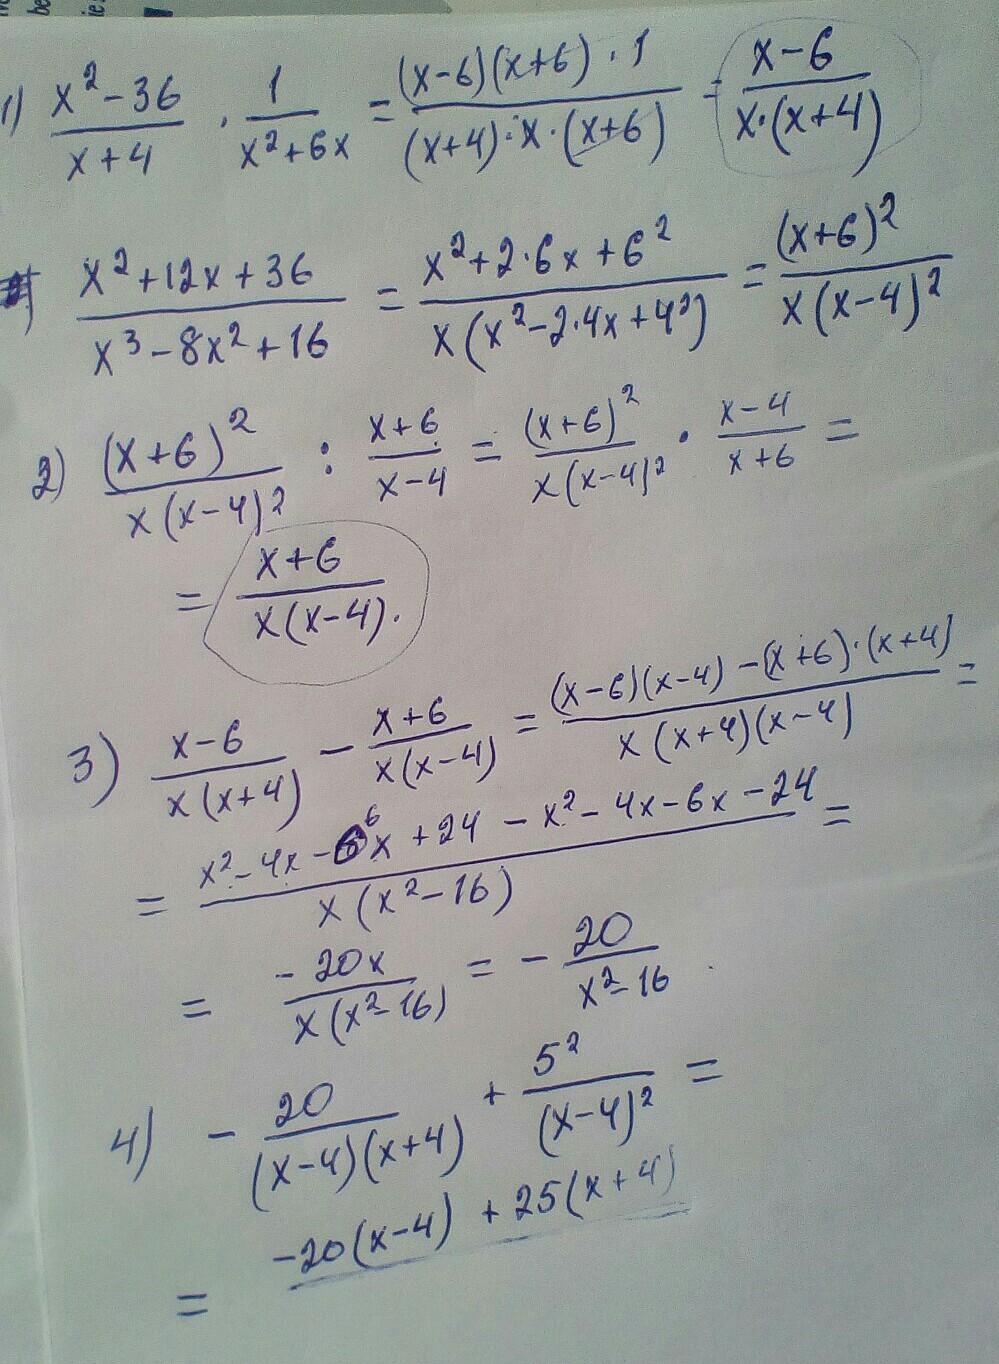 1) (x²-36)/(x+4) · 1/(x²+6x) = ((x-6)(x+6)·1)/((x+4)·x·(x+6)) = (x-6)/(x·(x+4))
(x²+12x+36)/(x³-8x²+16) = (x²+2·6x+6²)/(x(x²-2·4x+4²)) = (x+6)²/(x(x-4)²)
2) (x+6)²/(x(x-4)²) : (x+6)/(x-4) = (x+6)²/(x(x-4)²) · (x-4)/(x+6) =
= (x+6)/(x(x-4)).
3) (x-6)/(x(x+4)) - (x+6)/(x(x-4)) = ((x-6)(x-4)-(x+6)·(x+4))/(x(x+4)(x-4)) =
= (x²-4x-6x+24-x²-4x-6x-24)/(x(x²-16)) =
= (-20x)/(x(x²-16)) = -20/(x²-16).
4) -20/((x-4)(x+4)) + 5²/(x-4)² =
= -20(x-4)+25(x+4)